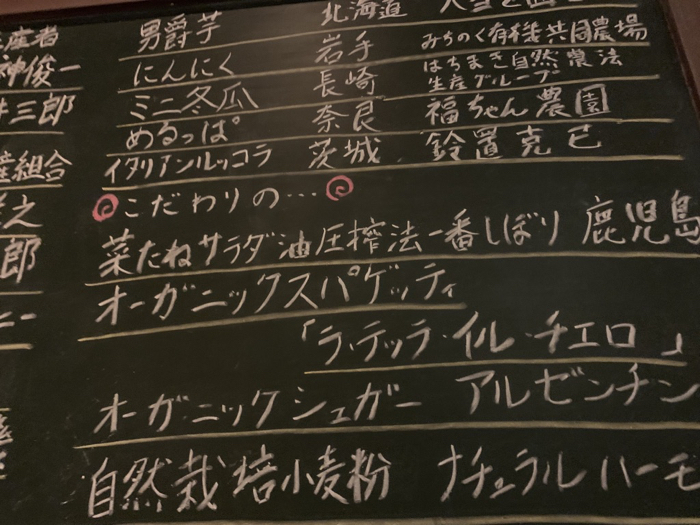 産者 男爵芋 北海道
神俊一 にんにく 岩手 みちのく有機共同農場
三郎 ミニ冬瓜 長崎 はちまき自然農法
生産グループ
めるっぱ° 奈良 福ちゃん農園
産組合 イタリアンルッコラ 茨城 鈴置克己
之 こだわりの…
郎 菜たねサラダ油圧搾法一番しぼり 鹿児島
オーガニックスパゲッティ
「ラ・テッラ・イル・チェロ」
オーガニックシュガー アルゼンチン
自然栽培小麦粉 ナチュラルハーモ